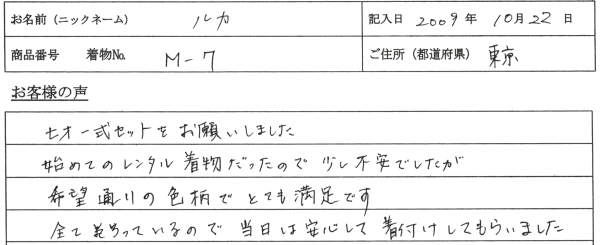 お名前（ニックネーム） ルカ 記入日 2009年 10月22日
商品番号 着物No. M-7 ご住所（都道府県） 東京
お客様の声
七才一式セットをお願いしました
始めてのレンタル着物だったので少し不安でしたが
希望通りの色柄でとても満足です
全て揃っているので当日は安心して着付けしてもらいました